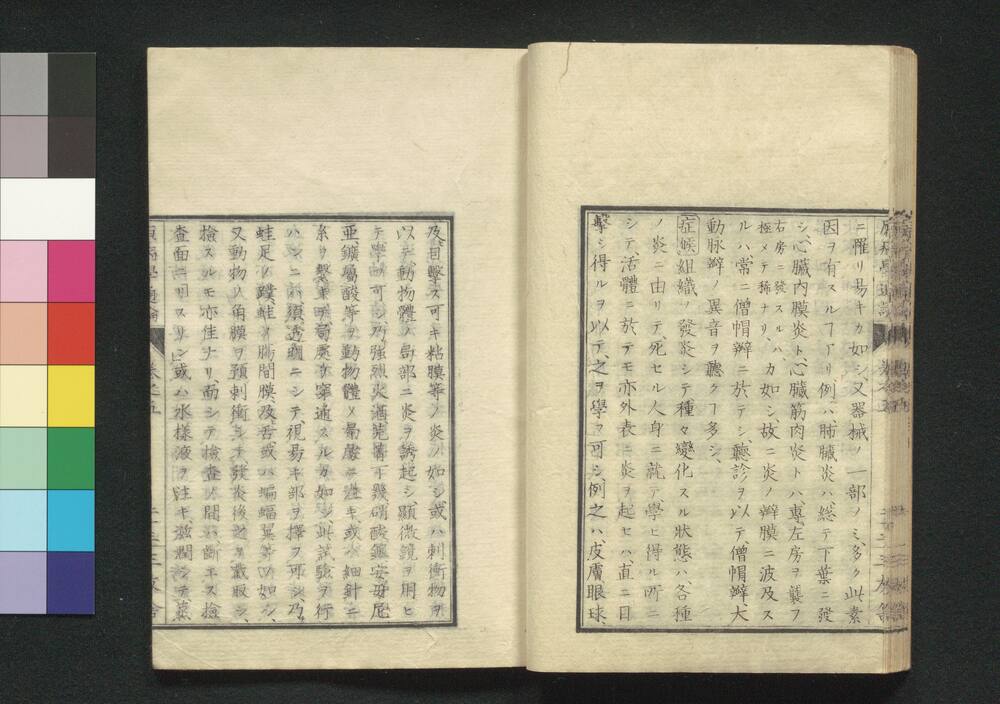 ニ罹リ易キカ如シ又器械ノ一部ノミ多ク此素
因ヲ有スルヿアリ例ハ肺臓炎ハ総テ下葉ニ發
シ、心臓内膜炎ト、心臓筋肉炎トハ、專左房ヲ襲フ
右房ニ發スルハ、極メテ稀ナリ、カ如シ、故ニ炎ノ辨膜ニ波及ス
ルハ常ニ僧帽辨ニ於テシ、聽診ヲ以テ、僧帽辨、大
動脉辨ノ異音ヲ聽クヿ多シ、
症候 組織ノ發炎シテ種々變化スル状態ハ、各種
ノ炎ニ由リテ、死セル人身ニ就テ、學ヒ得ル所ニ
シテ、活體ニ於テモ亦外表ニ炎ヲ起ヒハ、直ニ目
擊シ得ルヲ以テ、之ヲ學フ可シ、例之ハ、皮膚、眼球、
及目擊ス可キ粘膜等ノ炎ノ如シ、或ハ刺衝物ヲ
以テ、動物體ノ局部ニ炎ヲ誘起シ、顯微鏡ヲ用ヒ
テ學フ可シ乃強烈火酒芫菁丁幾、硝酸、安母尼
亜、鑛屬酸等ヲ動物體ノ局處ニ注キ、或ハ細針ニ
糸ヲ繫キテ局處ヲ穿通スルカ如シ、此試驗ヲ行
ハンニハ、須透明ニシテ視易キ部ヲ擇フ可シ、乃
蛙足ノ蹼、蛙ノ腸間膜及舌、或ハ蝙蝠翼等ノ如シ、
又動物ノ角膜ヲ預刺衝シテ發炎後之ヲ截取シ、
檢スルモ亦佳ナリ、而シテ檢査ノ間ハ、斷エス檢
査面ニ
或ハ水樣液ヲ注キ、滋潤シテ蒸